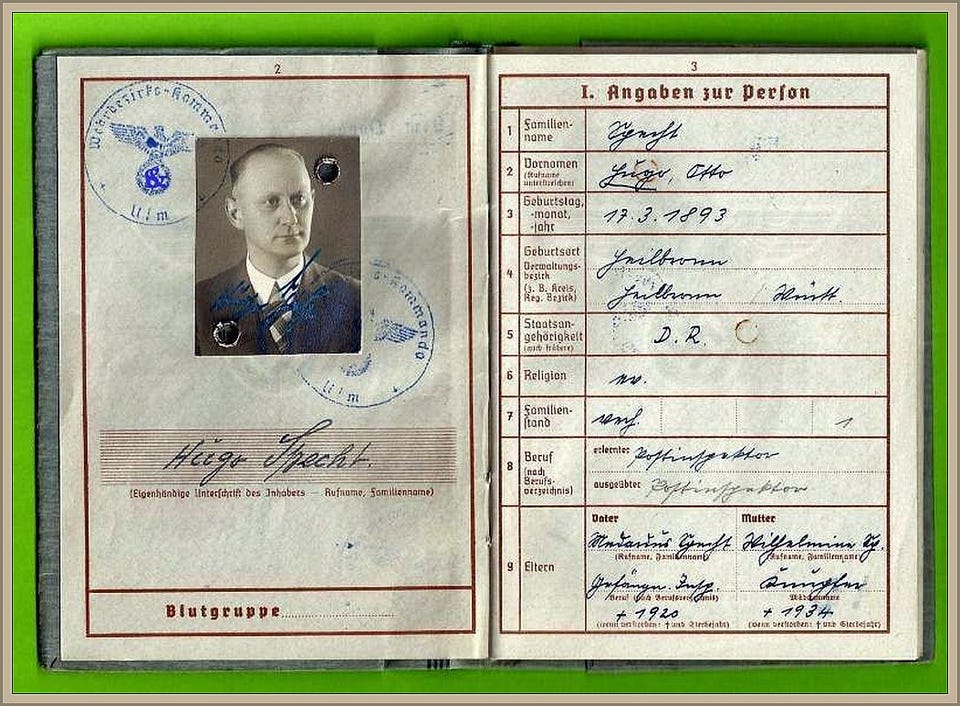 2
Wehrbezirks-Komman
Ulm
kommando
Ulm
Hugo Specht.
(Eigenhändige Unterschrift des Inhabers — Rufname, Familienname)
Blutgruppe
3
I. Angaben zur Person
1 Familien-
name
Specht
2 Vornamen
(Rufname
unterstreichen)
Hugo, Otto
3 Geburtstag,
-monat,
-jahr
17.3.1893
4 Geburtsort
Heilbronn
Verwaltungs-
bezirk
(z. B. Kreis,
Reg. Bezirk)
Heilbronn / Württ.
5 Staatsan-
gehörigkeit
(auch frühere)
D.R.
6 Religion
ev.
7 Familien-
stand
verh. 1
8 Beruf
(nach
Berufs-
verzeichnis)
erlernter Postinspektor
ausgeübter Postinspektor
9 Eltern
Vater Mutter
Medardus Specht Wilhelmine Sp.
(Rufname, Familienname) (Rufname, Familienname)
Gefängn. Insp. Knupfer
Beruf (nach Berufsverzeichnis) Mädchenname
+ 1920 + 1934
(wenn verstorben: † und Sterbejahr) (wenn verstorben: † und Sterbejahr)